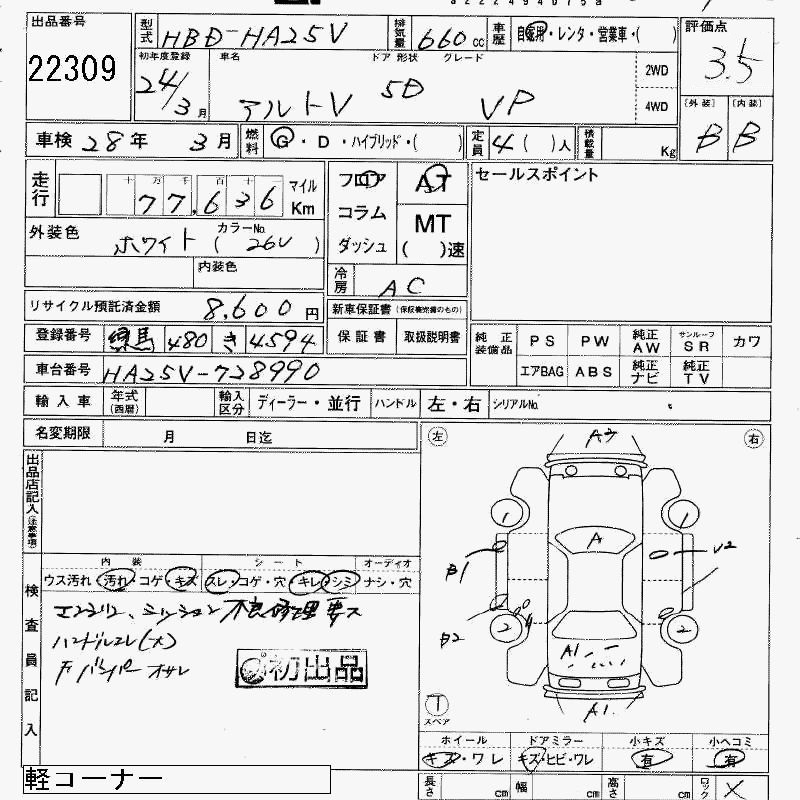 出品番号 22309
型式 HBD-HA25V 排気量 660 cc 車歴 自家用・レンタ・営業車・( )
評価点 3.5
初年度登録 24/3月 車名 アルトV ドア 形状 5D グレード VP 2WD 4WD
[外装] B [内装] B
車検 28年 3月 燃料 G・D・ハイブリッド・( ) 定員 4( )人 積載量 Kg
走行 十万千百十 77,636 マイル Km
フロア AT
コラム MT
ダッシュ ( )速
セールスポイント
外装色 ホワイト カラーNo. ( 26U )
内装色
冷房 AC
リサイクル預託済金額 8,600 円
新車保証書 (保証継続完備のもの)
保証書 取扱説明書
登録番号 練馬 480 き 4594
純正装備品 PS PW 純正AW サンルーフSR カワ
エアBAG ABS 純正ナビ 純正TV
車台番号 HA25V-728990
輸入車 年式(西暦) 輸入区分 ディーラー・並行 ハンドル 左・右 シリアルNo.
名変期限 月 日迄
出品店記入(注意事項)
左 右
A2
1 1
A
B1 U2
B2
2 2
A1
A1
1
スペア
内装 シート オーディオ
ウス汚れ・汚れ・コゲ・キズ スレ・コゲ・穴・キレ・シミ ナシ・穴
検査員記入
エンジン、ミッション不良修理要ス
ハンドルスレ(大)
Fバンパーオサレ
初出品
ホイール ドアミラー 小キズ 小ヘコミ
キズ・ワレ キズ・ヒビ・ワレ 有 有
軽コーナー
長さ cm 幅 cm 高さ cm ロック X